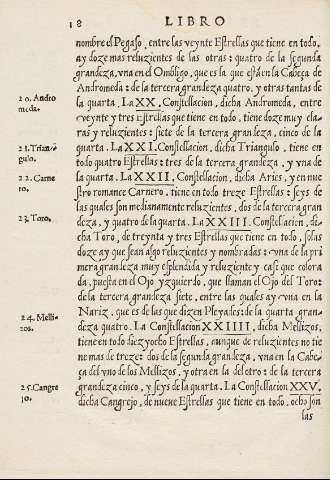 18 LIBRO
nombre el Pegaso, entre las veynte Estrellas que tiene en todo,
ay doze mas reluzientes de las otras: quatro de la segunda
grandeza, vna en el Ombligo, que es la que está en la Cabeça de
Andromeda: de la tercera grandeza quatro, y otras tantas de
20. Andro
meda.
la quarta. La XX. Constellacion, dicha Andromeda, entre
veynte y tres Estrellas que tiene en todo, tiene doze muy cla-
ras y reluzientes: siete de la tercera grandeza, cinco de la
21. Trian-
gulo.
quarta. La XXI. Constellacion, dicha Triangulo, tiene en
todo quatro Estrellas: tres de la tercera grandeza, y vna de
22. Carne
ro.
la quarta. La XXII. Constellacion, dicha Aries, y en nue
stro romance Carnero, tiene en todo treze Estrellas: seys de
las quales son medianamente reluzientes, dos de la tercera gran
23. Toro.
deza, y quatro de la quarta. La XXIII. Constellacion, di-
cha Toro, de treynta y tres Estrellas que tiene en todo, solas
doze ay que sean algo reluzientes y nombradas: vna de la pri
mera grandeza muy esplendida y reluziente y casi que colora
da, puesta en el Ojo yzquierdo, que llaman el Ojo del Toro:
de la tercera grandeza siete, entre las quales ay vna en la
Nariz, que es de las que dizen Pleyades: de la quarta gran-
24. Melli
zos.
deza quatro. La Constellacion XXIIII, dicha Mellizos,
tiene en todo diez yocho Estrellas, aunque de reluzientes no tie
ne mas de treze: dos de la segunda grandeza, vna en la Cabe
ça del vno de los Mellizos, y otra en la del otro: de la tercera
25. Cangre
jo.
grandeza cinco, y seys de la quarta. La Constellacion XXV.
dicha Cangrejo, de nueve Estrellas que tiene en todo, ocho son
las